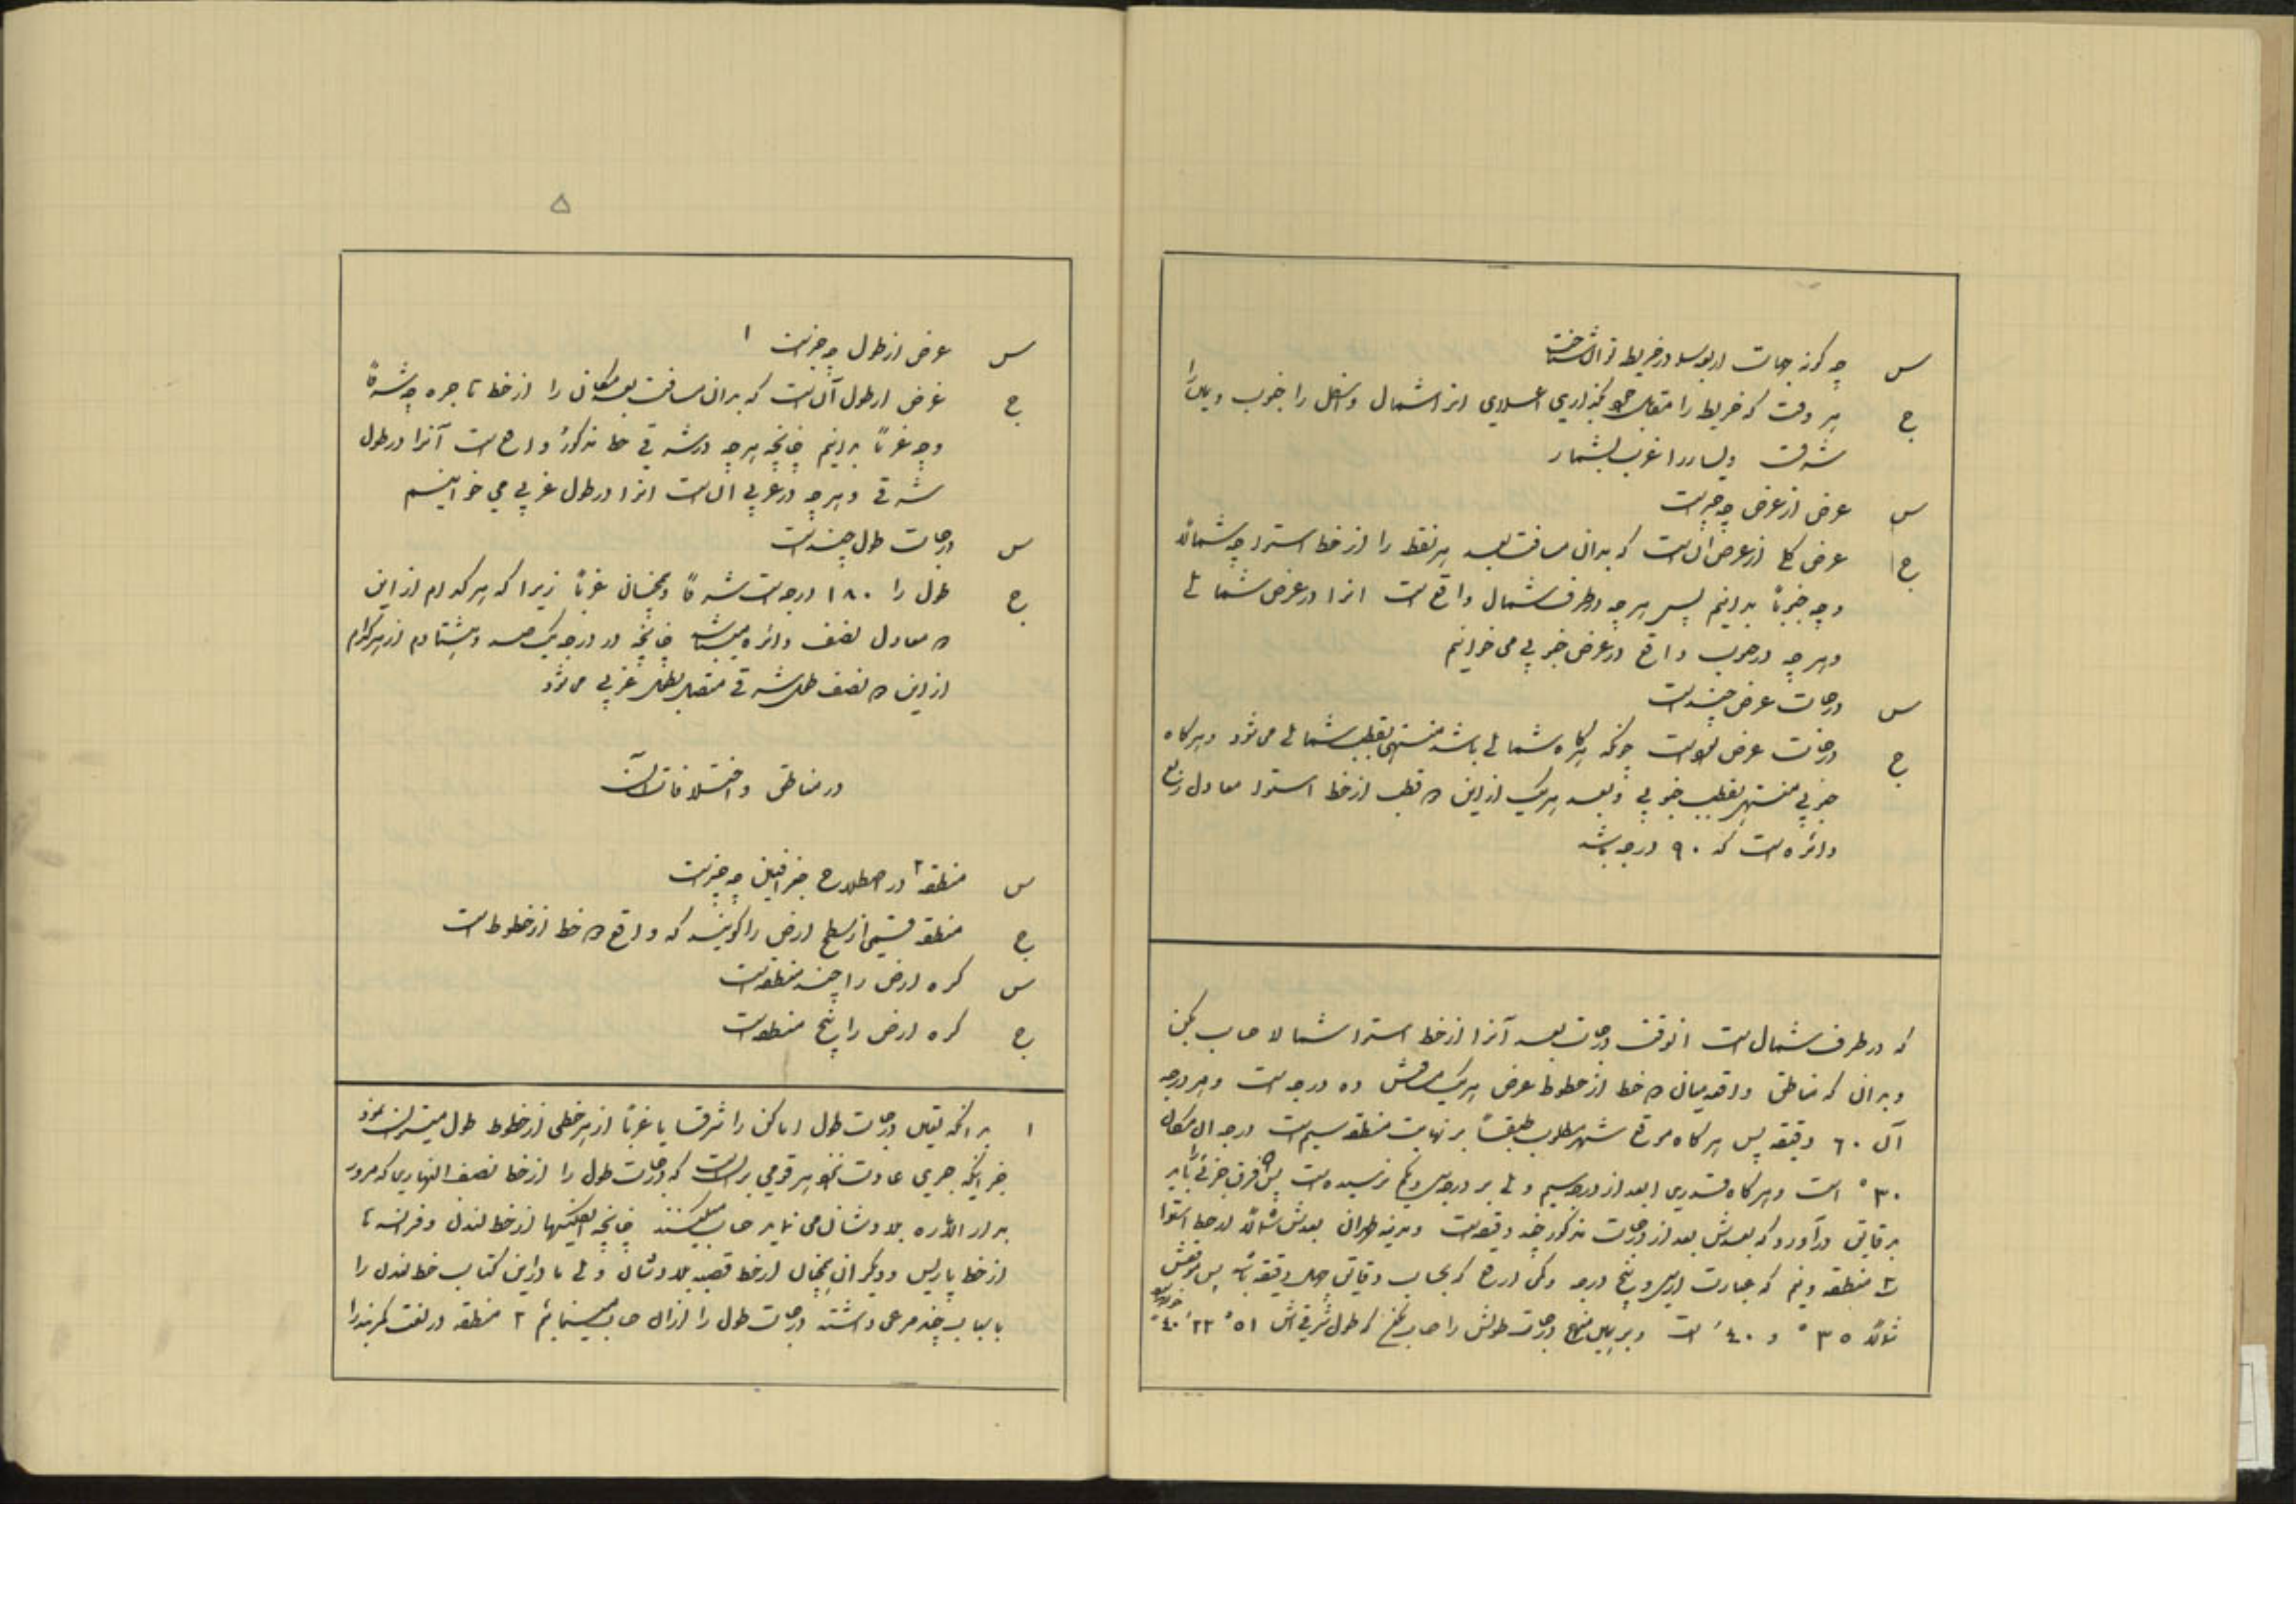 س چه گونه جهات اربعه در خریطه توان شناخت
ج هر وقت که خریطه را متقابل خود بگذاری اعلای انرا شمال و اسفل را جنوب و یمین را
شرق و یسار را غرب بشمار
س غرض از عرض چه چیز است
ج غرض کلی از عرض ان است که بدان مسافت بعد هر نقطه را از خط استوا چه شمالاً
و چه جنوباً بدانیم پس هر چه در طرف شمال واقع است انرا در عرض شمالی
و هر چه در جنوب واقع در عرض جنوبی می خوانیم
س درجات عرض چند است
ج درجات عرض نود است چونکه هر گاه شمالی باشد منتهی بقطب شمالی می شود و هر گاه
جنوبی منتهی بقطب جنوبی و بعد هر یک از این ۲ قطب از خط استوا معادل ربع
دائره است که ۹۰ درجه باشد
که در طرف شمال است انوقت درجات بعد آنرا از خط استوا شمالا حساب بکن
و بدان که مناطق واقعه میان ۲ خط از خطوط عرض هر یک مسافتش ده درجه است و هر درجه
آن ۶۰ دقیقه پس هر گاه موقع شهر مطلوب طبقاً بر نهایت منطقه سیم است درجه ان مکان
۳۰° است و هر گاه قدری ابعد از درجه سیم ولی بر درجه سی و یکم نرسیده است پس فرق جزئی را باید
بدقایق درآورد که بعدش بعد از درجات مذکور چند دقیقه است و مدینه طهران بعدش شمالاً از خط استوا
۳ منطقه و نیم که عبارت از سی و پنج درجه و کسی ارفع که بحساب دقایق چهل دقیقه باشد پس موقعش
شمالاً ۳۵° و ۴۰′ است و بر همین منهج درجات طولش را حساب بکن که طول شرقی اش ۵۱° ۲۳′ ۴۰″
۵
س غرض از طول چه چیز است ۱
ج غرض از طول آن است که بدان مسافت بعد مکان را از خط تا جره چه شرقاً
و چه غرباً بدانیم چنانچه هر چه در شرقی خط مذکور واقع است آنرا در طول
شرقی و هر چه در غربی ان است انرا در طول غربی می خوانیم
س درجات طول چند است
ج طول را ۱۸۰ درجه است شرقاً و همچنان غرباً زیرا که هر کدام از این
۲ معادل نصف دائره میباشد چنانچه در درجه یک صد و هشتادم از هر کدام
از این ۲ نصف طول شرقی متصل بطول غربی می شود
در مناطق و اختلافات آن
س منطقه ۲ در اصطلاح جغرافیین چه چیز است
ج منطقه قسمی از سطح ارض را گویند که واقع ۲ خط از خطوط است
س کره ارض را چند منطقه است
ج کره ارض را پنج منطقه است
۱ بدانکه تعیین درجات طول اماکن را شرقا یا غرباً از هر خطی از خطوط طول میتوان نمود
جز اینکه جری عادت نحو هر قومی بر ان است که درجات طول را از خط نصف النهاری که مرور
بدار الاماره بلادشان می نماید حساب میکنند چنانچه انگلیسها از خط لندن و فرانسه ها
از خط پاریس و دیگران همچنان از خط قصبه بلادشان ولی ما در این کتاب خط لندن را
باسباب چند مرعی داشته درجات طول را از ان حساب مینمائیم ۲ منطقه در لغت کمربند را